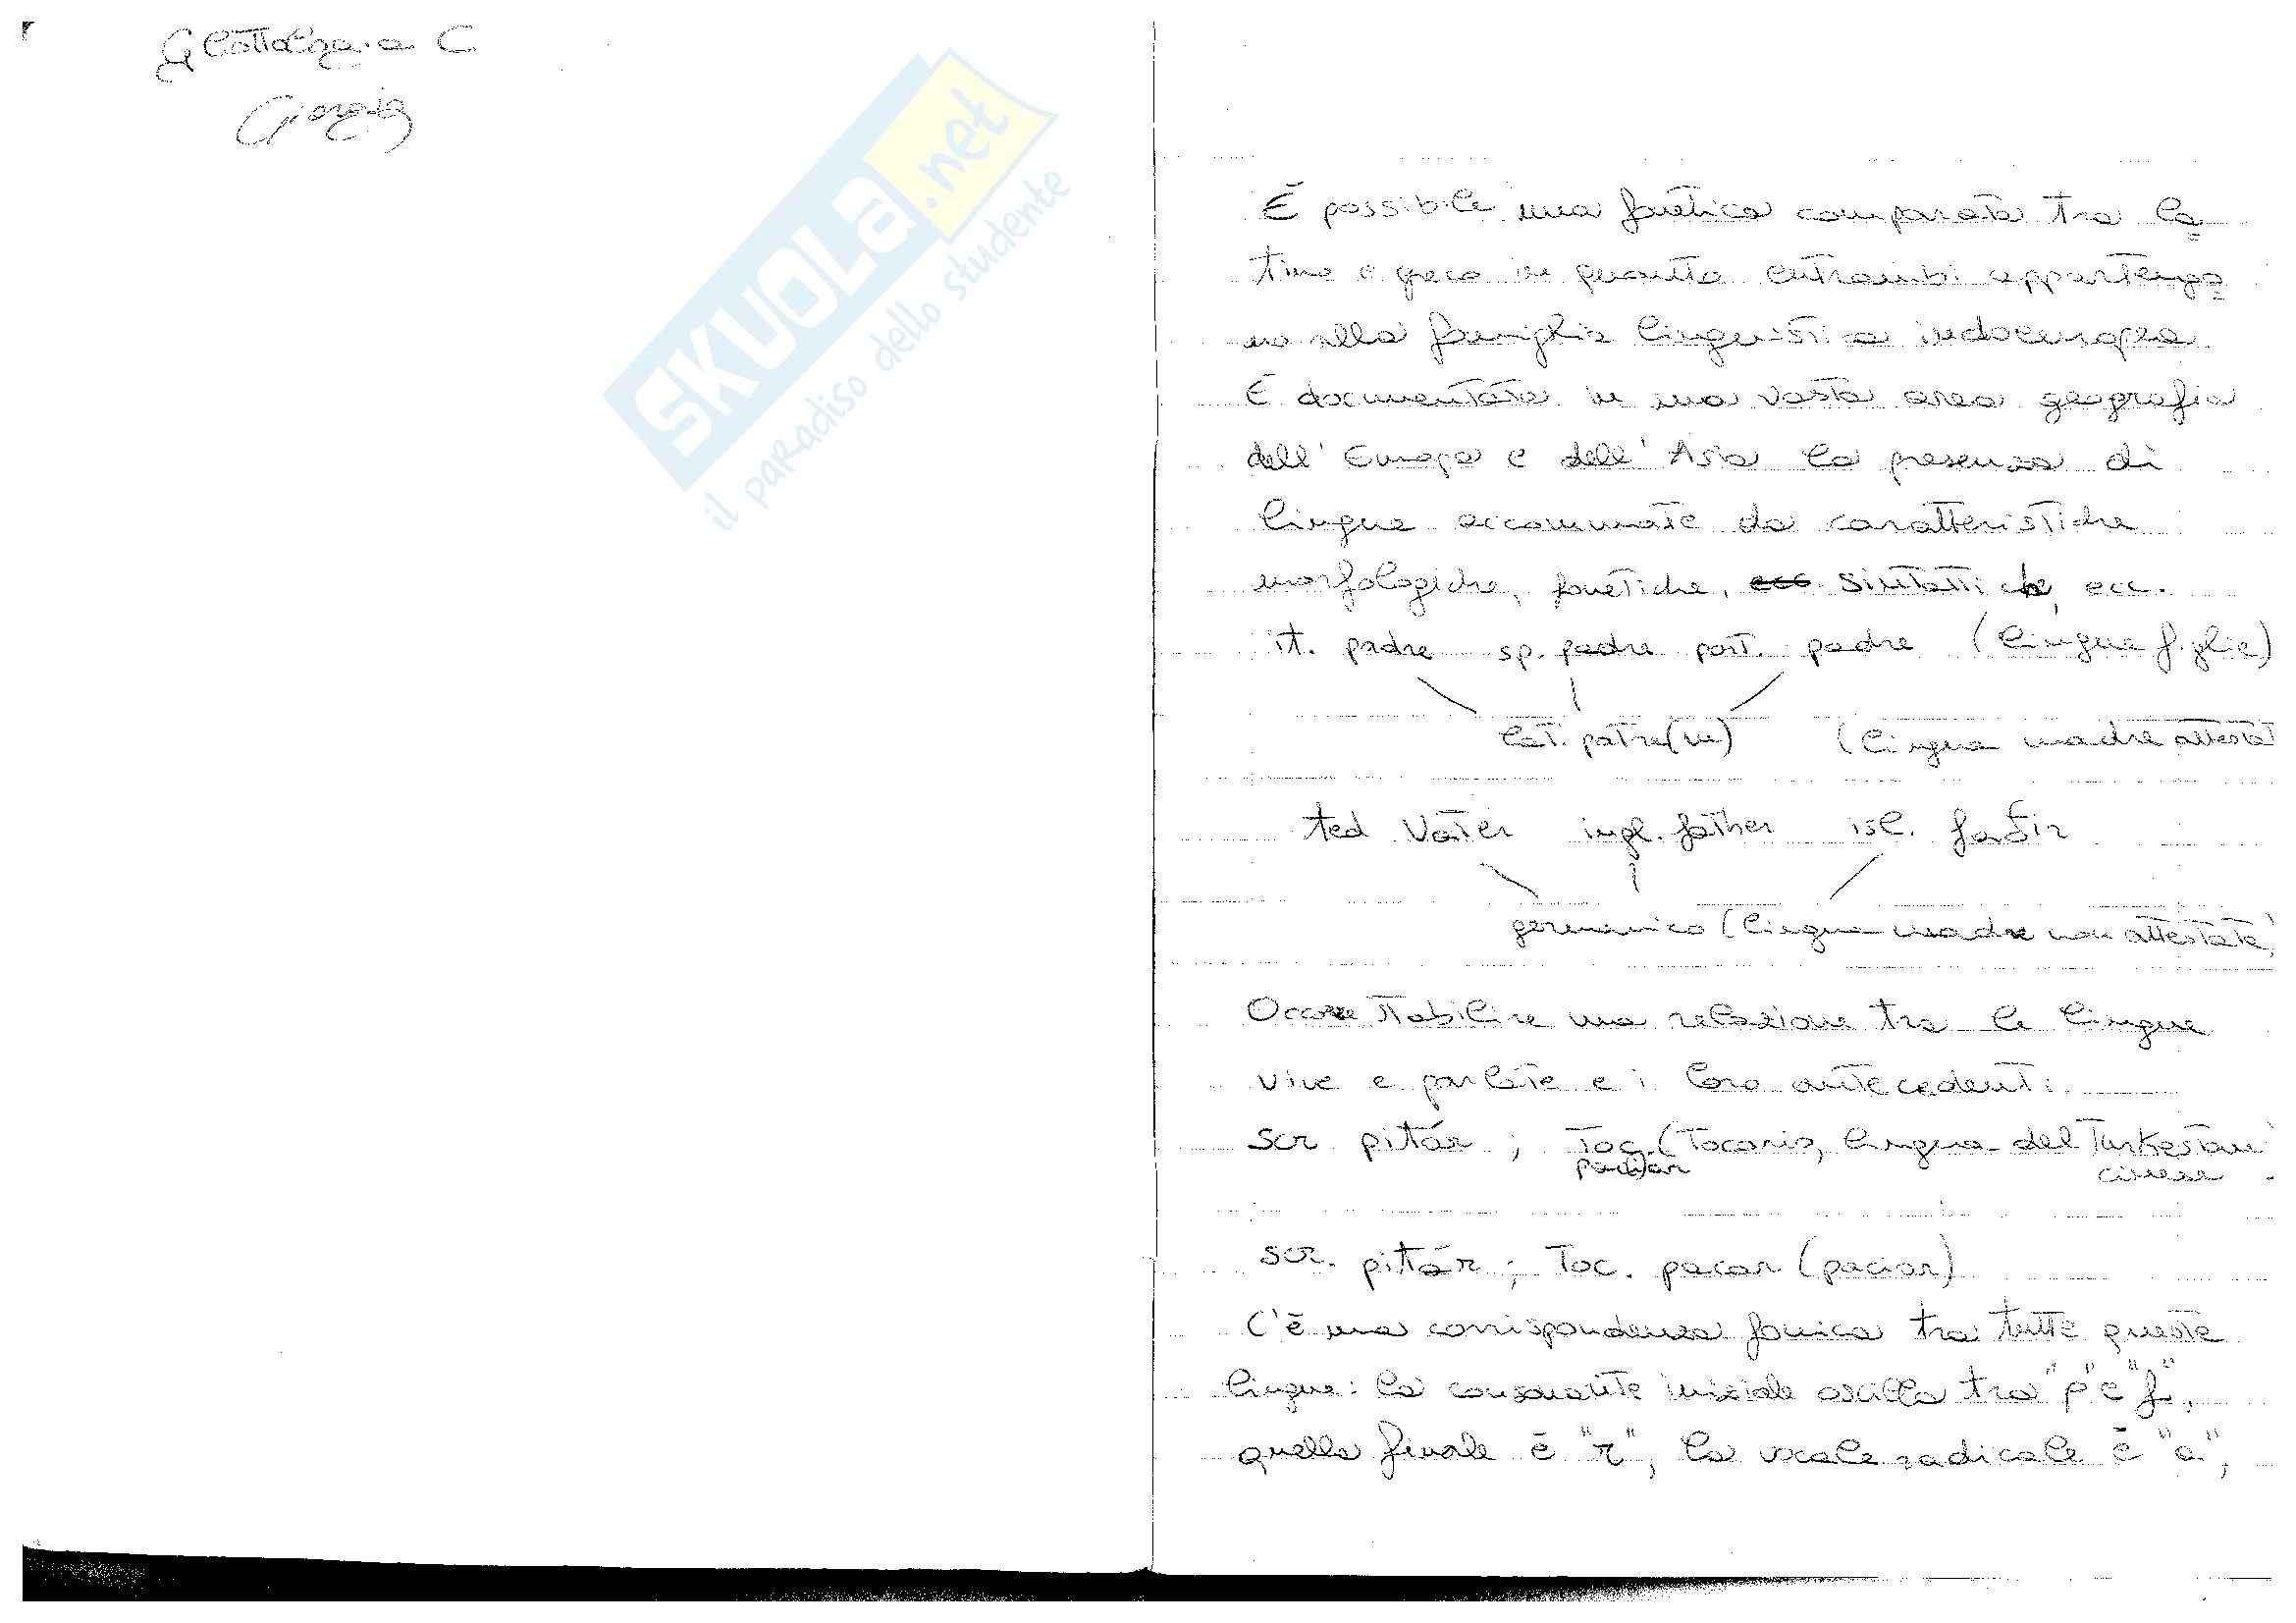 Glottologia C
Giorgia
SKUOLA.net
il paradiso dello studente
È possibile una fonetica comparata tra la=
tino e greco in quanto entrambi appartengo=
no alla famiglia linguistica indoeuropea.
È documentata in una vasta area geografica
dell'Europa e dell'Asia la presenza di
lingue accomunate da caratteristiche
morfologiche, fonetiche, ecc sintattiche, ecc.
it. padre sp. padre port. padre (lingue figlie)
lat. patre(m) (lingua madre attestata
ted Vater ingl. father isl. faðir
germanico (lingua madre non attestata)
Occorre stabilire una relazione tra le lingue
vive e parlate e i loro antecedenti.
scr pitár ; Toc. (Tocario, lingua del Turkestan
cinese
scr. pitár ; Toc. pacar (paciar)
C'è una corrispondenza fonica tra tutte queste
lingue: la consonante iniziale oscilla tra "p" e "f",
quella finale è "r", la vocale radicale è "a",